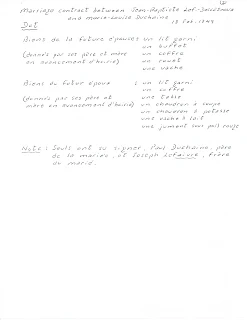 Marriage contract between Jean-Baptiste
and Marie-Louise Duchaine
Dot
Biens de la future épouse : un lit garni
un buffet
(donnés par ses père et mère un coffre
en avancement d'hoirie) un rouet
une vache
Biens du futur époux : un lit garni
un coffre
(donnés par ses père et une table
mère en avancement d'hoirie) un chaudron à soupe
un chaudron à potasse
une vache à lait
une jument sous poil rouge
Note : Seuls ont su signer, Paul Duchaine, père
de la mariée, et Joseph Lefaivre, frère
du marié.